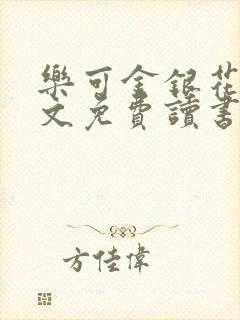 樂可金銀花
文免費讀書
方佳偉